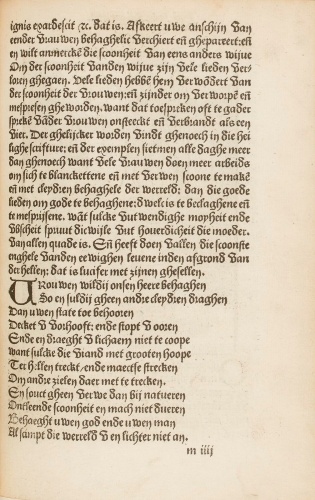 ignis exardescit ꝛc. dat is. Afkeert uwe anschijn van
eender vrauwen behaghelic verchiert eñ ghepareert: eñ
en wilt anmercken̄ die scoonheit van eens anders wijue
Om der scoonheit vanden wiue zijn vele lieden ver⸗
loren ghegaen. vele lieden hebbē hem verwōdert van
der scoonheit der vrouwen: eñ zijnder om verworpē eñ
mespresen ghewordē. want dat toespreken oft te gader
sprekē vāder vrouwen onsteeckt eñ verbrandt als een
vier. Der ghelijcker worden vindt ghenoech in die hei
lighe scrifture: eñ der exemplen sietmen alle daghe meer
dan ghenoech want vele vrauwen doen meer arbeids
om sich te blanckettene eñ met verwen scoone te makē
eñ met cleydren behaghele der werreld: dan die goede
lieden om gode te behaghene: dwelc is te beclaghene eñ
te mesprijsene. wāt sulcke vutwendighe moyheit ende
vbscheit spruut dicwijle vut houerdicheit die moeder.
van allen quade is. Eñ heeft doen vallen die scoonste
enghele vanden eewighen leuene in den afgrond van
der hellen: dat is lucifer met zijnen ghesellen.
Vrouwen wildij onsen heere behaghen
So en suldij gheen andre cleydren draghen
Dan uwen state toe behooren
Decket v voorhooft: ende stopt v ooren
Ende en draeght v lichaem niet te coope
want sulcke die viand met grooten hoope
Ter hellen treckt/ ende maectse strecken
Om andre zielen daer met te trecken.
En souct gheen verwe dan bij natueren
Ontleende scoonheit en mach niet dueren
Behaeght uwen god ende uwen man
Al scampt die werreld v en lichter niet an.
m iiij